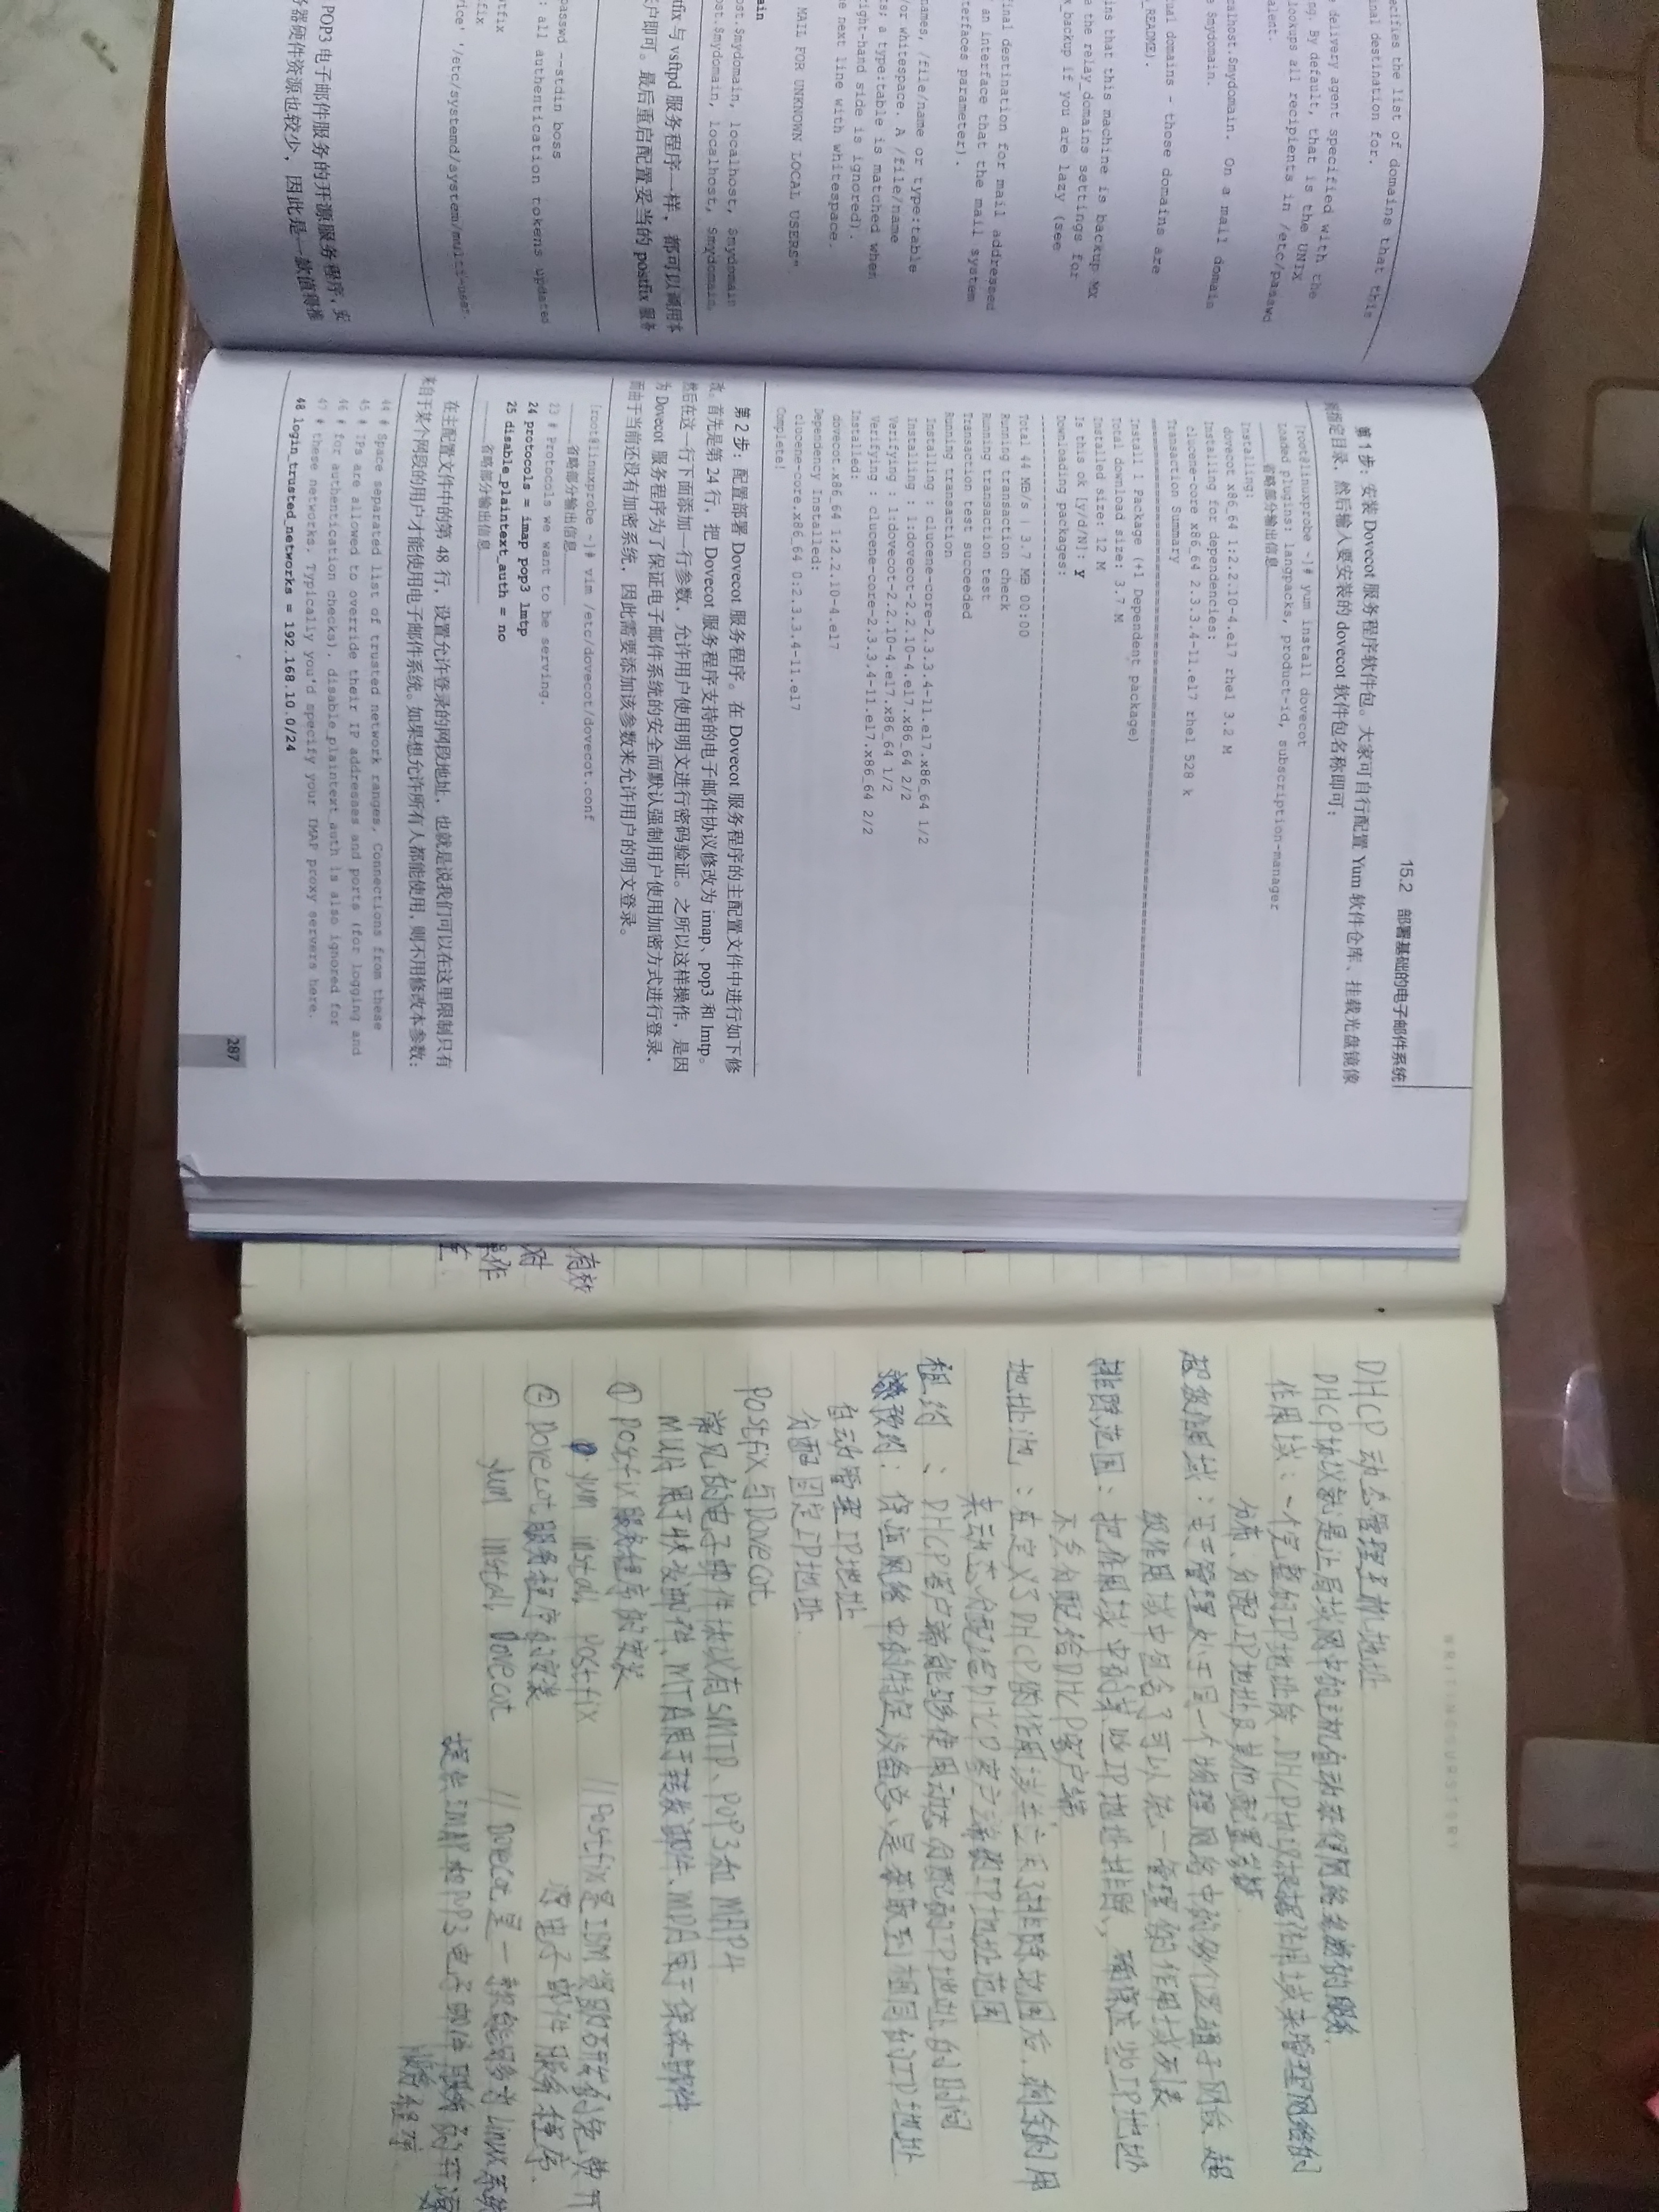 ecifies the list of domains that this
inal destination for.
delivery agent specified with the
ng. By default, that is the UNIX
lookups all recipients in /etc/passwd
alent.
calhost.$mydomain. On a mail domain
$mydomain.
ual domains - those domains are
_README).
ins that this machine is backup MX
the relay_domains settings for
x_backup if you are lazy (see
inal destination for mail addressed
an interface that the mail system
terfaces parameter).
names, /file/name or type:table
/or whitespace. A /file/name
s; a type:table is matched when
ight-hand side is ignored).
e next line with whitespace.
MAIL FOR UNKNOWN LOCAL USERS"
ain
ost.$mydomain, localhost, $mydomain
ost.$mydomain, localhost, $mydomain,
fix 与 vsftpd 服务程序一样，都可以调用本
户即可。最后重启配置妥当的 postfix 服务
passwd --stdin boss
: all authentication tokens updated
tfix
fix
vice' '/etc/systemd/system/multi-user.
POP3 电子邮件服务的开源服务程序，安
器硬件资源也较少，因此是一款值得推
15.2 部署基础的电子邮件系统
第 1 步：安装 Dovecot 服务程序软件包。大家可自行配置 Yum 软件仓库、挂载光盘镜像
到指定目录，然后输入要安装的 dovecot 软件包名称即可：
[root@linuxprobe ~]# yum install dovecot
Loaded plugins: langpacks, product-id, subscription-manager
省略部分输出信息
Installing:
dovecot x86_64 1:2.2.10-4.el7 rhel 3.2 M
Installing for dependencies:
clucene-core x86_64 2.3.3.4-11.el7 rhel 528 k
Transaction Summary
Install 1 Package (+1 Dependent package)
Total download size: 3.7 M
Installed size: 12 M
Is this ok [y/d/N]: y
Downloading packages:
Total 44 MB/s | 3.7 MB 00:00
Running transaction check
Running transaction test
Transaction test succeeded
Running transaction
Installing : clucene-core-2.3.3.4-11.el7.x86_64 1/2
Installing : 1:dovecot-2.2.10-4.el7.x86_64 2/2
Verifying : 1:dovecot-2.2.10-4.el7.x86_64 1/2
Verifying : clucene-core-2.3.3.4-11.el7.x86_64 2/2
Installed:
dovecot.x86_64 1:2.2.10-4.el7
Dependency Installed:
clucene-core.x86_64 0:2.3.3.4-11.el7
Complete!
第 2 步：配置部署 Dovecot 服务程序。在 Dovecot 服务程序的主配置文件中进行如下修
改。首先是第 24 行，把 Dovecot 服务程序支持的电子邮件协议修改为 imap、pop3 和 lmtp。
然后在这一行下面添加一行参数，允许用户使用明文进行密码验证。之所以这样操作，是因
为 Dovecot 服务程序为了保证电子邮件系统的安全而默认强制用户使用加密方式进行登录，
而由于当前还没有加密系统，因此需要添加该参数来允许用户的明文登录。
[root@linuxprobe ~]# vim /etc/dovecot/dovecot.conf
省略部分输出信息
23 # Protocols we want to be serving.
24 protocols = imap pop3 lmtp
25 disable_plaintext_auth = no
省略部分输出信息
在主配置文件中的第 48 行，设置允许登录的网段地址，也就是说我们可以在这里限制只有
来自于某个网段的用户才能使用电子邮件系统。如果想允许所有人都能使用，则不用修改本参数：
44 # Space separated list of trusted network ranges. Connections from these
45 # IPs are allowed to override their IP addresses and ports (for logging and
46 # for authentication checks). disable_plaintext_auth is also ignored for
47 # these networks. Typically you'd specify your IMAP proxy servers here.
48 login_trusted_networks = 192.168.10.0/24
287
有效
对
操作
WRITINGURSTORY
DHCP 动态管理主机地址
DHCP协议就是让局域网中的主机自动获得网络参数的服务
作用域：一个完整的IP地址段，DHCP协议根据作用域来管理网络的
分布、分配IP地址及其他配置参数
超级作用域：用于管理处于同一个物理网络中的多个逻辑子网段 超
级作用域中包含了可以统一管理的作用域列表
排除范围：把作用域中的某些IP地址排除，确保这些IP地址
不会分配给DHCP客户端
地址池：在定义了DHCP的作用域并应用了排除范围后，剩余的用
来动态分配给DHCP客户端的IP地址范围
租约：DHCP客户端能够使用动态分配的IP地址的时间
预约：保证网络中的特定设备总是获取到相同的IP地址
自动管理IP地址
分配固定IP地址
Postfix与Dovecot
常见的电子邮件协议有SMTP、POP3和IMAP4
MUA用于收发邮件、MTA用于转发邮件、MDA用于保存邮件
① Postfix服务程序的安装
yum install postfix //Postfix是IBM资助研发的免费开
源电子邮件服务程序.
② Dovecot服务程序的安装
yum install Dovecot //Dovecot是一款能够为Linux系统
提供IMAP和POP3电子邮件服务的开源
服务程序